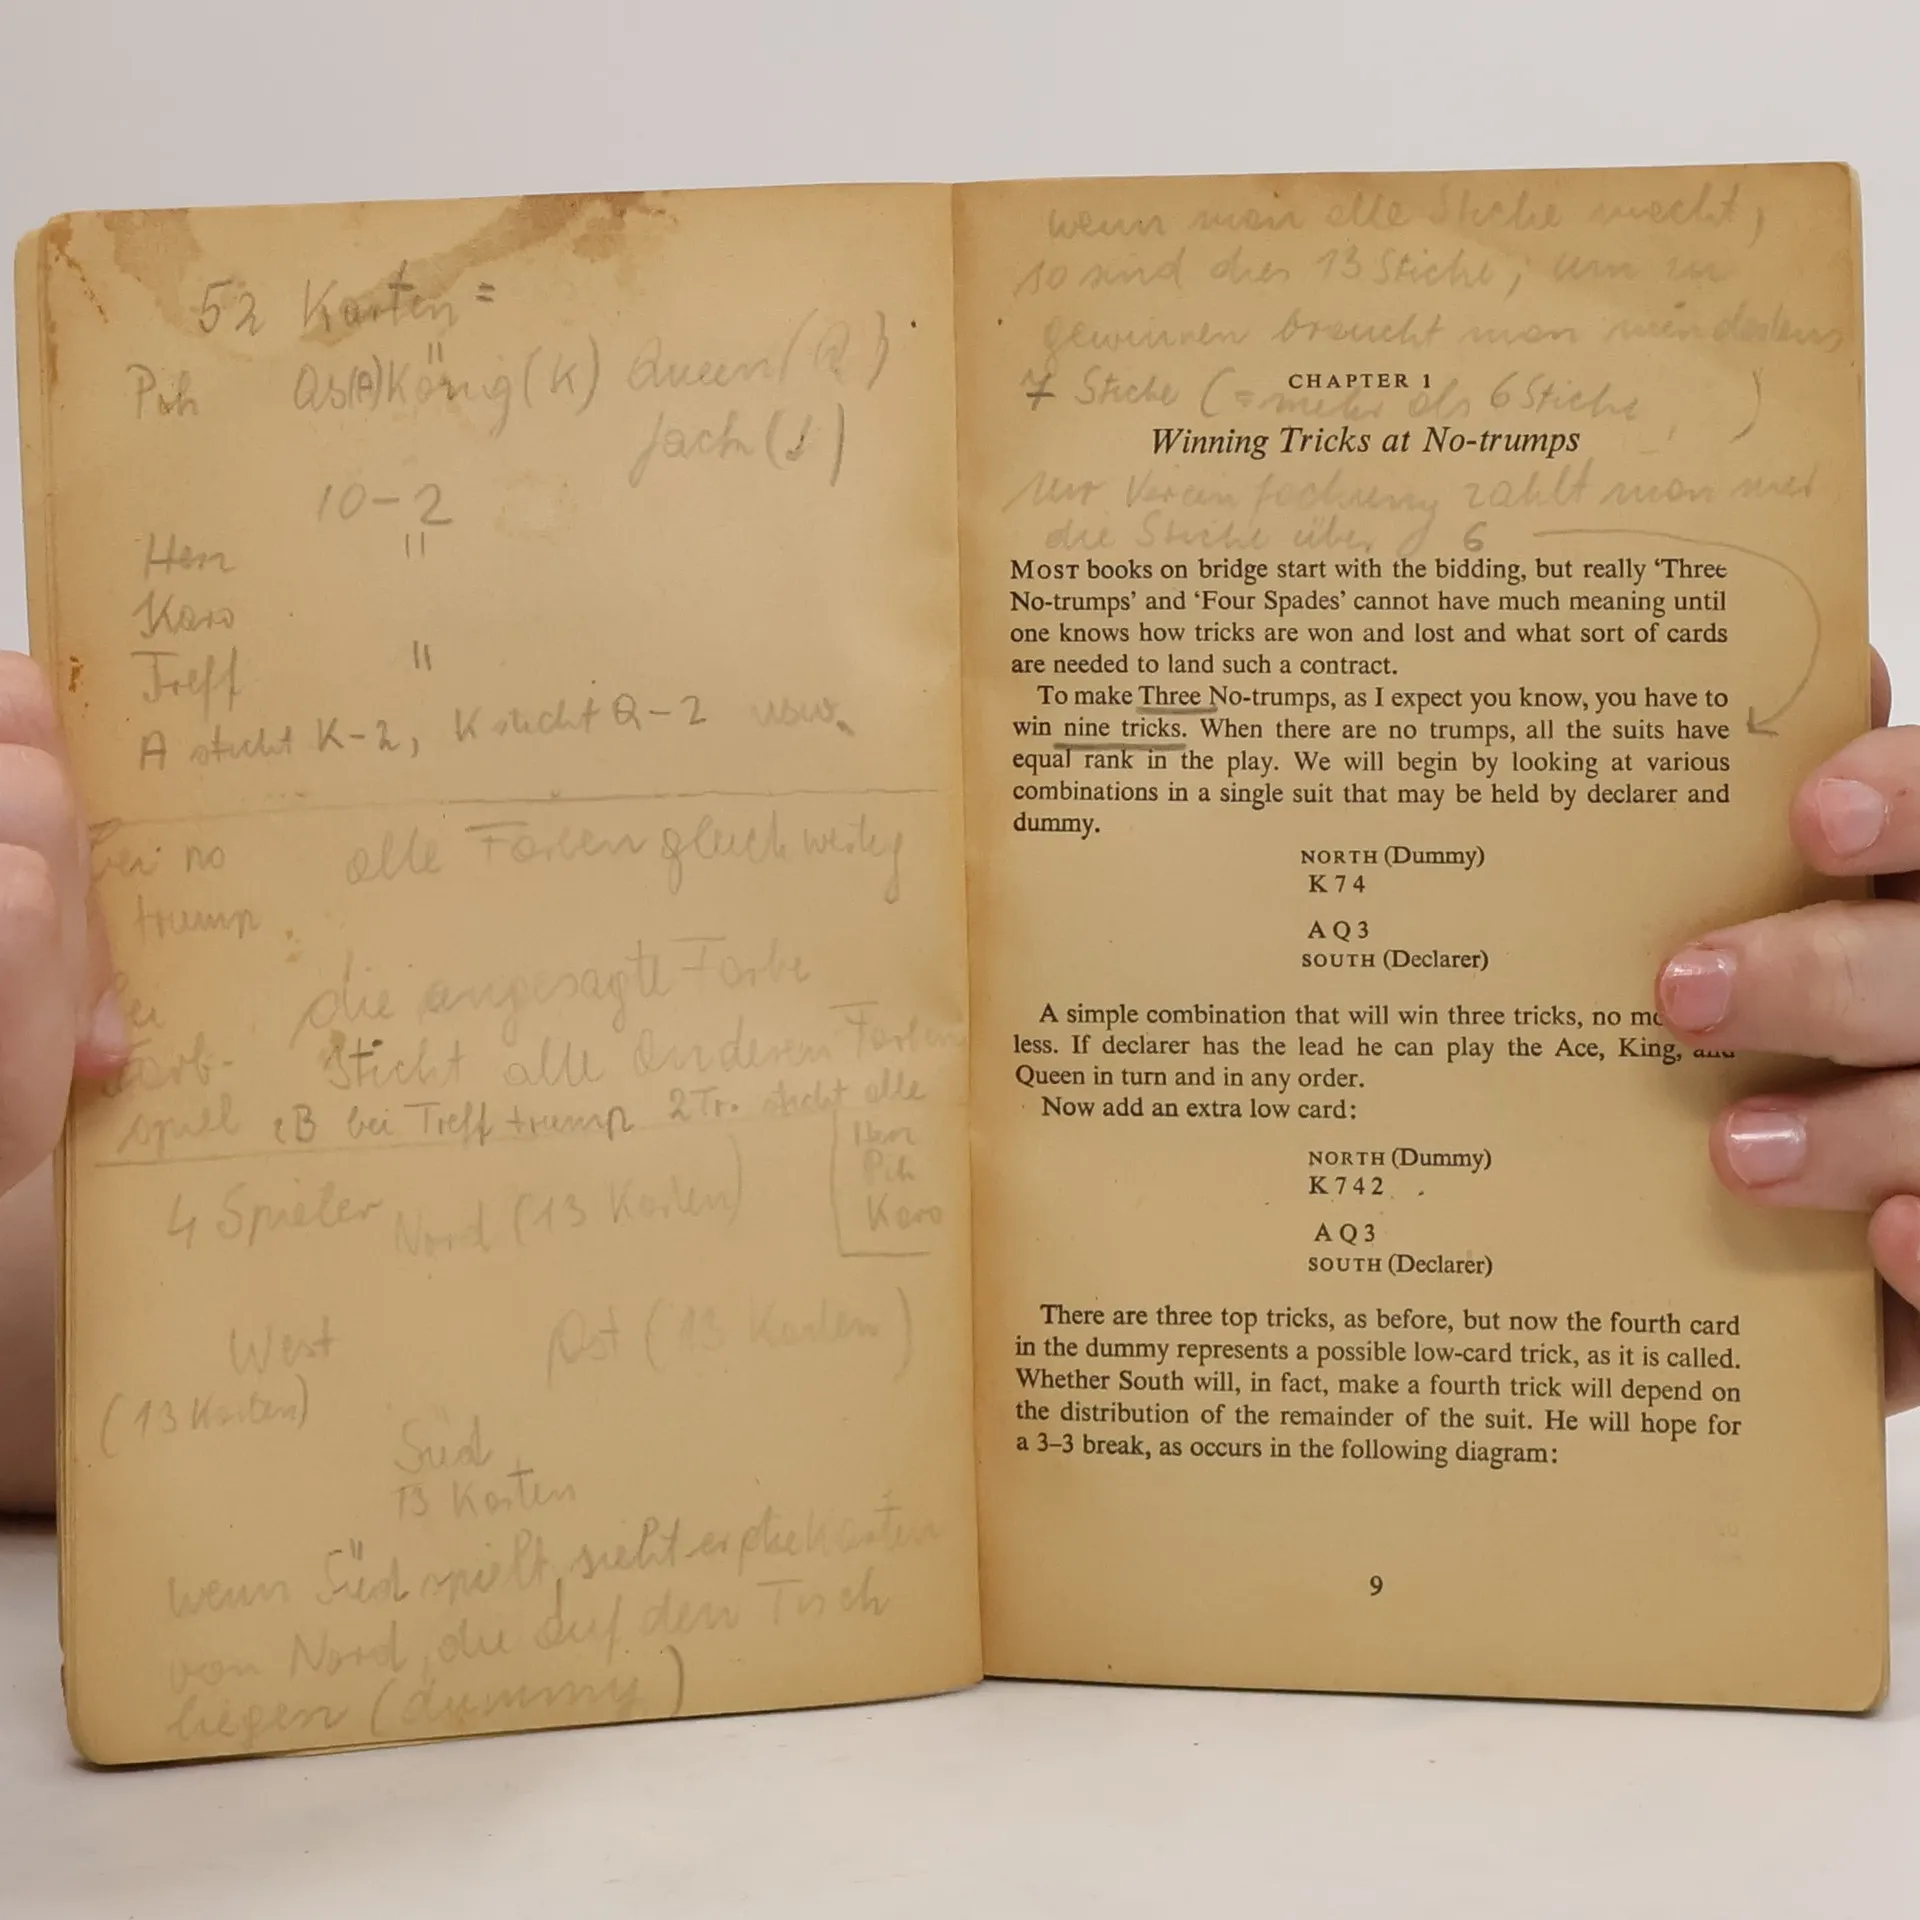 52 Karten =
Pik As(A) König(K) Queen(Q)
Jack(J)
10-2
Herz "
Karo
Treff "
A sticht K-2, K sticht Q-2 usw.
bei no alle Farben gleichwertig
trump
bei die angesagte Farbe
Farb- sticht alle anderen Farben
spiel zB bei Treff trump 2 Tr. sticht alle
Herz
Pik
Karo
4 Spieler Nord (13 Karten)
West Ost (13 Karten)
(13 Karten)
Süd
13 Karten
wenn Süd spielt, sieht er die Karten
von Nord, die auf den Tisch
liegen (dummy)
wenn man alle Stiche macht,
so sind dies 13 Stiche; um zu
gewinnen braucht man mindestens
7 Stiche (= mehr als 6 Stiche )
CHAPTER 1
Winning Tricks at No-trumps
zur Vereinfachung zählt man nur
die Stiche über 6
MOST books on bridge start with the bidding, but really ‘Three
No-trumps’ and ‘Four Spades’ cannot have much meaning until
one knows how tricks are won and lost and what sort of cards
are needed to land such a contract.
To make Three No-trumps, as I expect you know, you have to
win nine tricks. When there are no trumps, all the suits have
equal rank in the play. We will begin by looking at various
combinations in a single suit that may be held by declarer and
dummy.
NORTH (Dummy)
K 7 4
A Q 3
SOUTH (Declarer)
A simple combination that will win three tricks, no
less. If declarer has the lead he can play the Ace, King, and
Queen in turn and in any order.
Now add an extra low card:
NORTH (Dummy)
K 7 4 2
A Q 3
SOUTH (Declarer)
There are three top tricks, as before, but now the fourth card
in the dummy represents a possible low-card trick, as it is called.
Whether South will, in fact, make a fourth trick will depend on
the distribution of the remainder of the suit. He will hope for
a 3–3 break, as occurs in the following diagram:
9